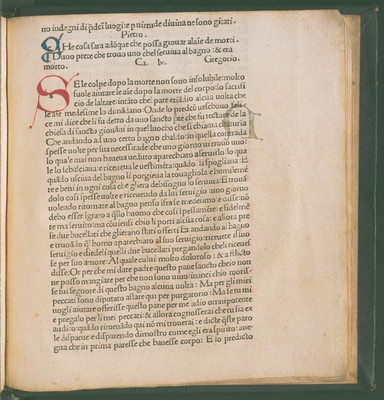 no indegni di p̄dei luoghi: e p̄ uirtu de diuina ne sono gittati.
Pietro.
CHe cosa sara adōque che possa giouar alaīe de morti.
Duno prete che trouo uno che seruiua al bagno: & era
morto. Ca. lv. Gregorio.
SE le colpe dopo la morte non sono insolubile: molto
suole aiutare le aīe dopo la morte del corpo: lo sacrifi
cio de laltare intāto che par etiādio alcua uolta che
le aīe medesime lo dimādano: Onde lo predco uescouo felice
mi dice che li fu detto da uno sancto prete che fu rectore de la
chiesa di sancto giouāni in quel luocho che si chiama
Che andando ad uno certo bagno chaldo: in quella contrada
spesse uolte per sua necessitade: che uno giorno ui trouo uno:
lo qua'e mai non haueua ueduro aparechiato a seruirlo: lo qua
le lo scalceaua e riceueua le uestimēta: quādo li spogliaua: E
quādo usciua del bagno li porgieua la touagliola: e humilemē
te e beni in ogni cosa che gliera debisogno lo seruiua: Et trouā
dolo cosi spesse uolte e riceuendo da lui seruigio: uno giorno
uolendo ritornare al bagno penso ifra se medesimo: e disse: nō
debo esser igrato a q̄llo huomo che cosi spessamēte: e fidelmē
te ma seruito: ma cōuiensi chio li porti alcūa cosa: e allora pre
se due bucellati che glierano stati offerti: Et andando al bagno
e trouādo q̄l homo aparechiato al suo seruigio: riceuete il suo
seruigio e diedeli quelli due bucellati pregandolo che li riceues
se per suo amore: Al quale colui molto doloroso: & a flicto
disse: Or per che mi date padre questo pane sancto che io non
ne posso mangiare per che non sono uiuo: inanci chio moris-
se fui segnore di questo bagno alcuna uolta: Ma per gli miei
peccati sono diputato a stare qui per purgatorio: Ma se tu mi
uogli aiutare offerisse questo pane per me a dio omnipotente
e pregalo per li mei peccati: & allora cognoscerai che tu sia ex
audito: quādo ritornādo qui nō mi trouerai: e dicte q̄ste paro
le disparue: e disparendo dimostro come egli era spirito: auen-
gua che in prima paresse che hauesse corpo: E lo predicto